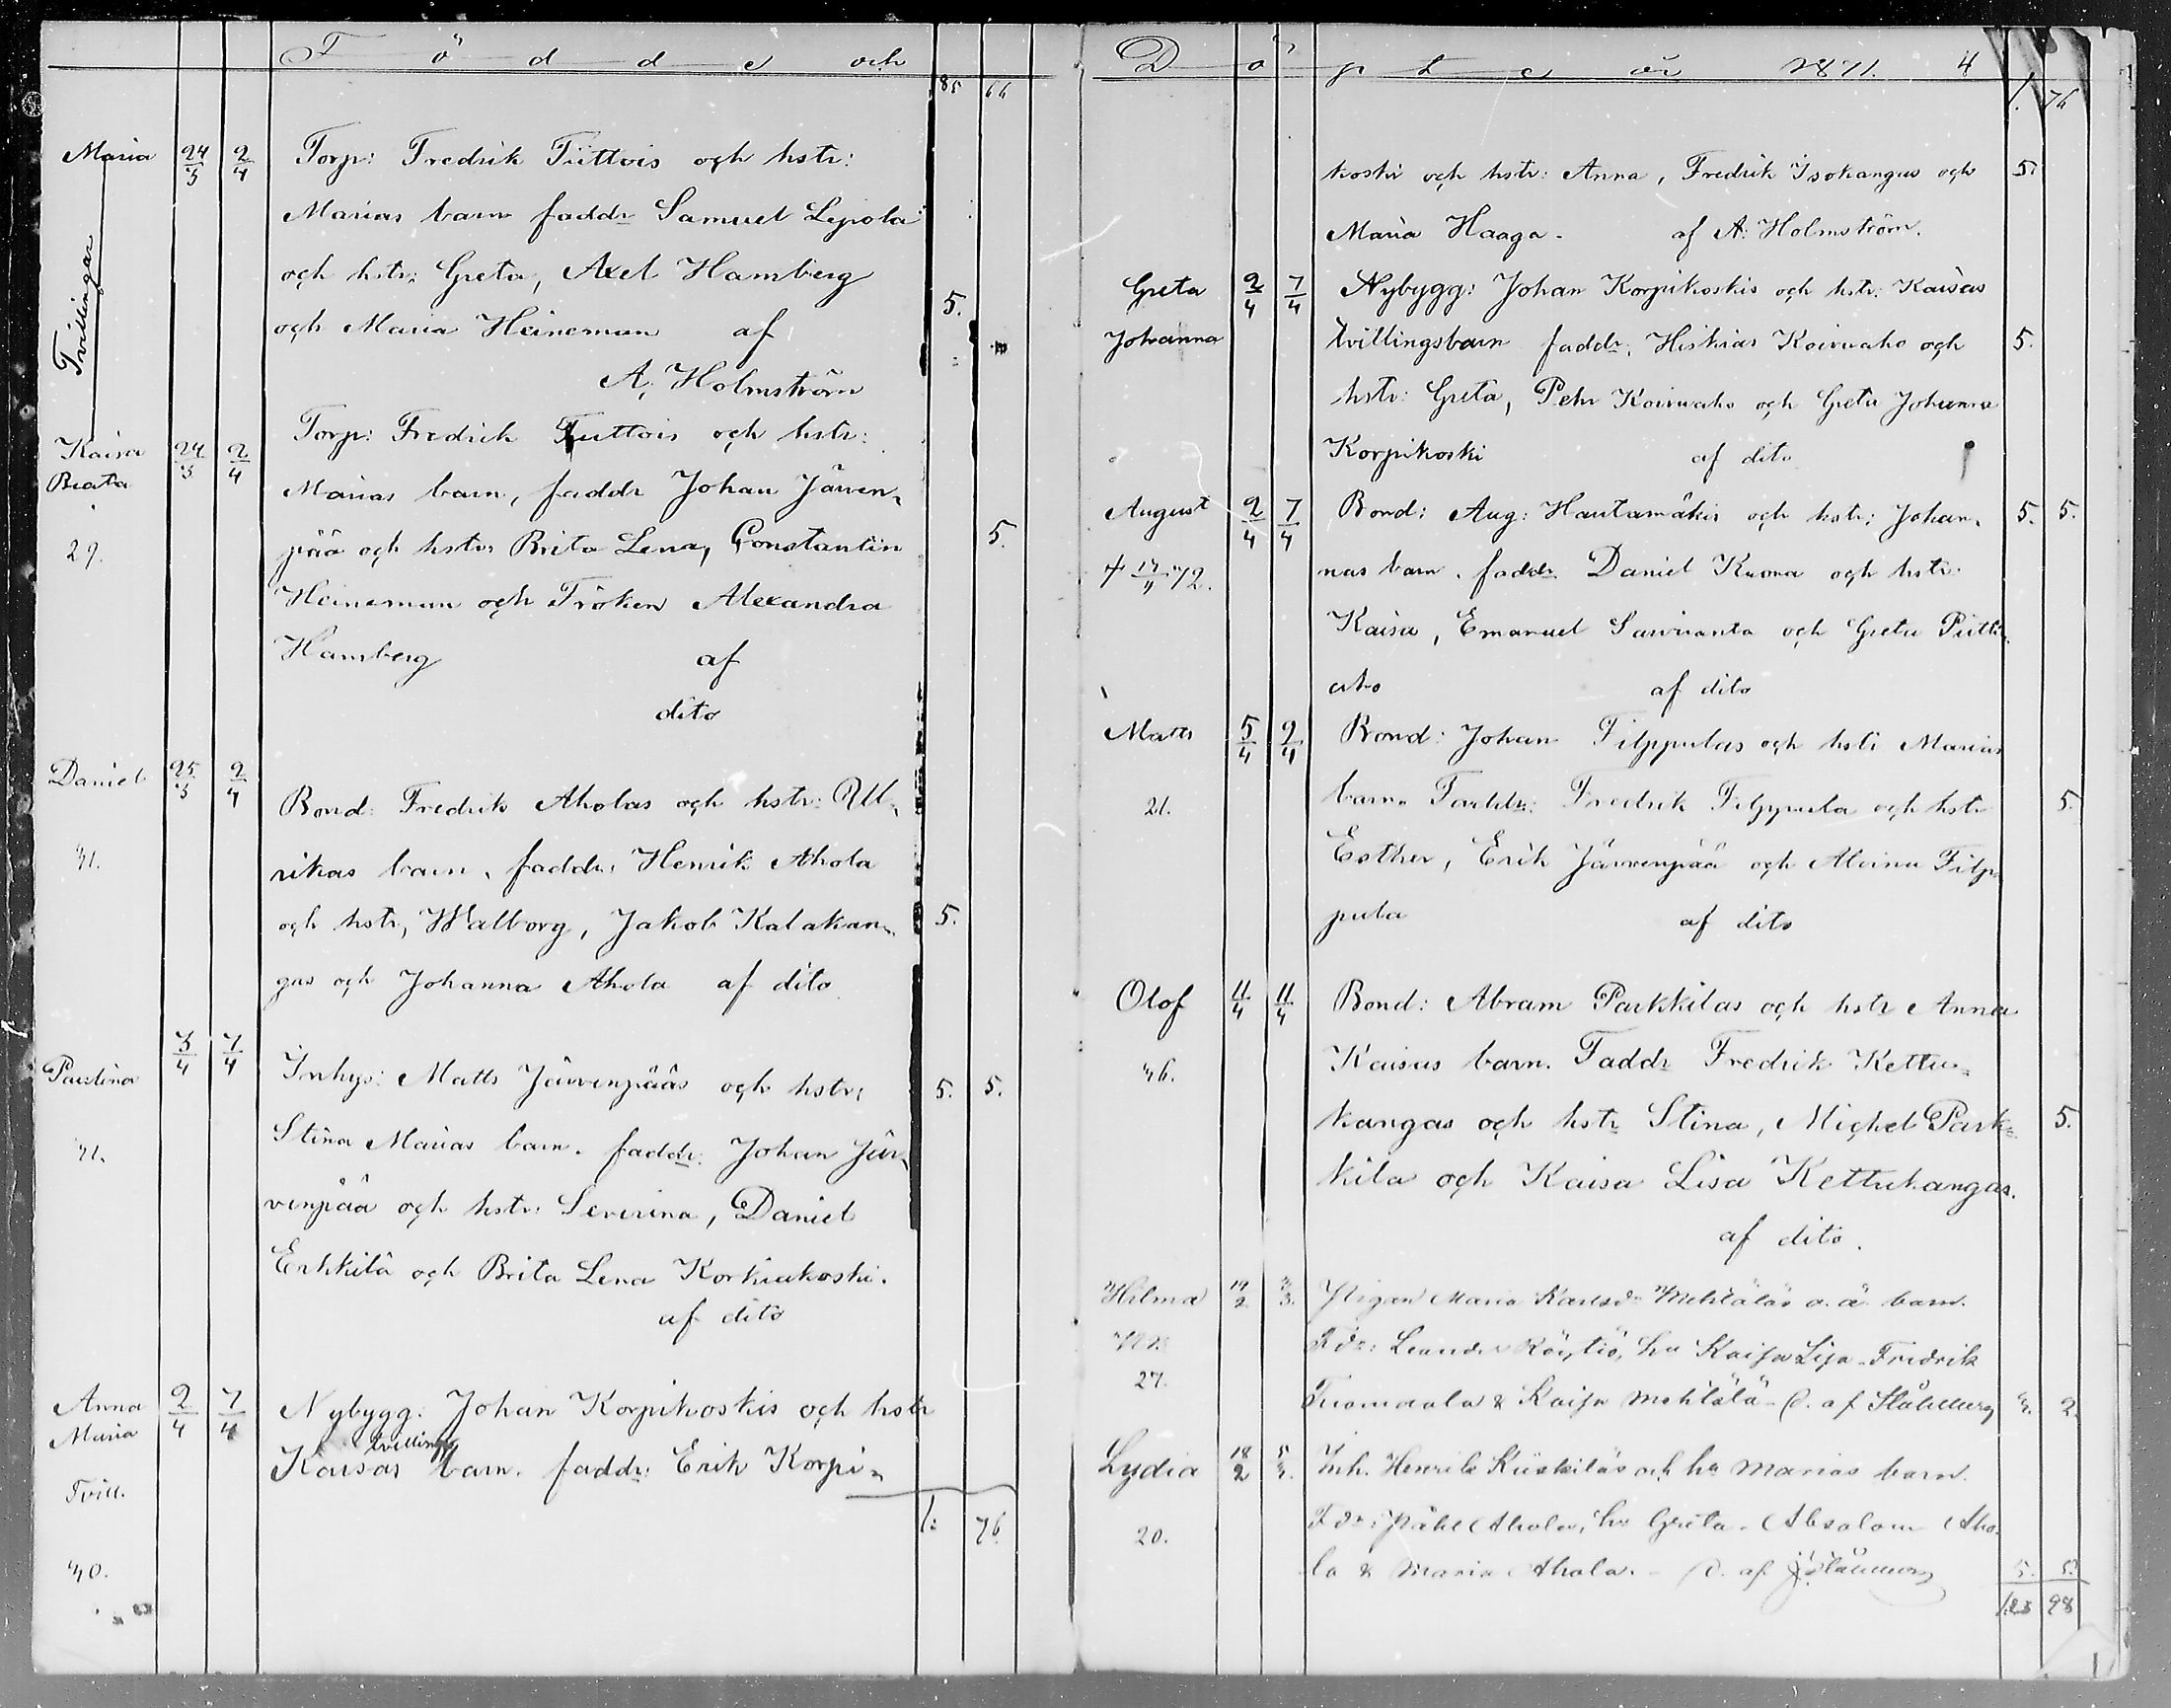 Födde och
85 66
Maria 24/3 2/4 Torp: Fredrik Tüttois och hstr:
Marias barn faddr Samuel Lepola
och hstr: Greta, Axel Hamberg
och Maria Heineman af 5.
A. Holmström
Tvillingar
Kaisa Beata 24/3 2/4 Torp: Fredrik Tuttois och hstr:
Marias barn, faddr Johan Järven-
29. pää och hstr: Brita Lena, Constantin 5.
Heineman och Fröken Alexandra
Hamberg af
dito
Daniel 25/3 2/4
Bond: Fredrik Aholas och hstr: Ul-
31. rikas barn, faddr: Henrik Ahola
och hstr, Walborg, Jakob Kalakan- 5.
gas och Johanna Ahola af dito
Paulina 3/4 7/4 Inhys: Matts Järvenpääs och hstr: 5. 5.
21. Stina Marias barn. faddr: Johan Jär-
venpää och hstr: Severina, Daniel
Erkkilä och Brita Lena Korkiakoski.
af dito
Anna Maria 2/4 7/4 Nybygg: Johan Korpikoskis och hstr
Kaisas tvillings barn. faddr: Erik Korpi-
Tvill.
1: 76.
40.
Döpte år 1871. 4
1. 76
koski och hstr: Anna, Fredrik Isokangas och 5.
Maria Haaga. af A. Holmström.
Greta Johanna 2/4 7/4 Nybygg: Johan Korpikoskis och hstr: Kaisas
tvillingsbarn faddr: Hiskias Koivuaho och 5.
hstr: Greta, Pehr Koivuaho och Greta Johanna
Korpikoski af dito
August 2/4 7/4 Bond: Aug: Hautamäkis och hstr: Johan- 5. 5.
72. nas barn. faddr Daniel Kuona och hstr:
Kaisa, Emanuel Sarviranta och Greta
aho af dito
Matts 5/4 9/4 Bond: Johan Filppulas och hstr Marias
21. barn. Faddr: Fredrik Filppula och hstr 5.
Esther, Erik Järvenpää och Alvina Filp-
pula af dito
Olof 11/4 11/4 Bond: Abram Parkkilas och hstr Anna
36. Kaisas barn. Faddr Fredrik Kettu-
kangas och hstr Stina, Michel Park- 5.
kila och Kaisa Lisa Kettukangas.
af dito.
Hilma 19/2 3/3. Pigan Maria Karlsdr Mehtäläs o. ä. barn.
Fdr: Leander Röytiö, hu Kaisa Lisa - Fredrik
27. Tuomaala & Kaisa Mehtälä - D. af Ståhlberg 3. 2.
Lydia 18/2 5/3. Inh. Henrik Kuskiläs och hu Marias barn.
20. Fdr: Påhl Ahola, hu Greta - Absalom Aho-
la & Maria Ahola. - D. af 5. 5.
1.23 98